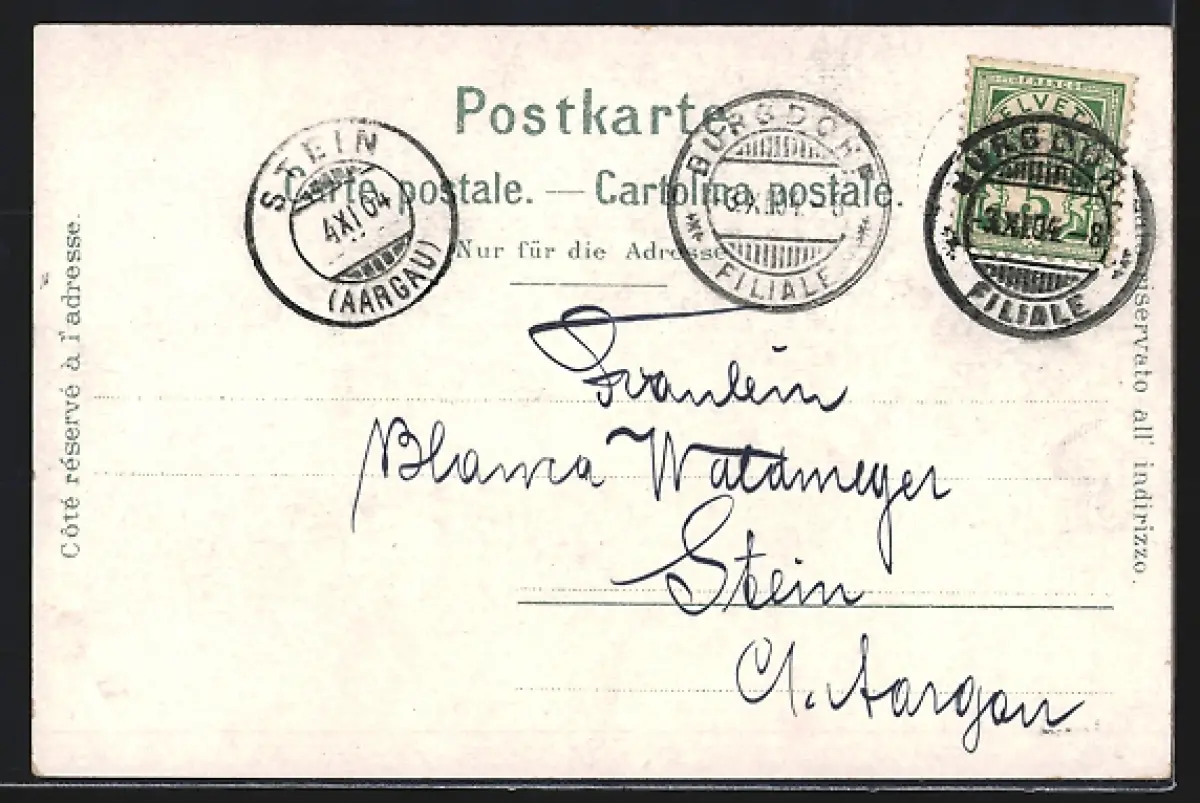 Postkarte
Carte postale. — Cartolina postale.
Nur für die Adresse
Côté réservé à l'adresse.
riservato all' indirizzo.
STEIN
4 XI 04
(AARGAU)
BURGDORF
XI 04 8
FILIALE
FRANCO
HELVETIA
5
BURGDORF
3 XI 04 8
FILIALE
Fräulein
Blanca Waldmeyer
Stein
Ct. Aargau